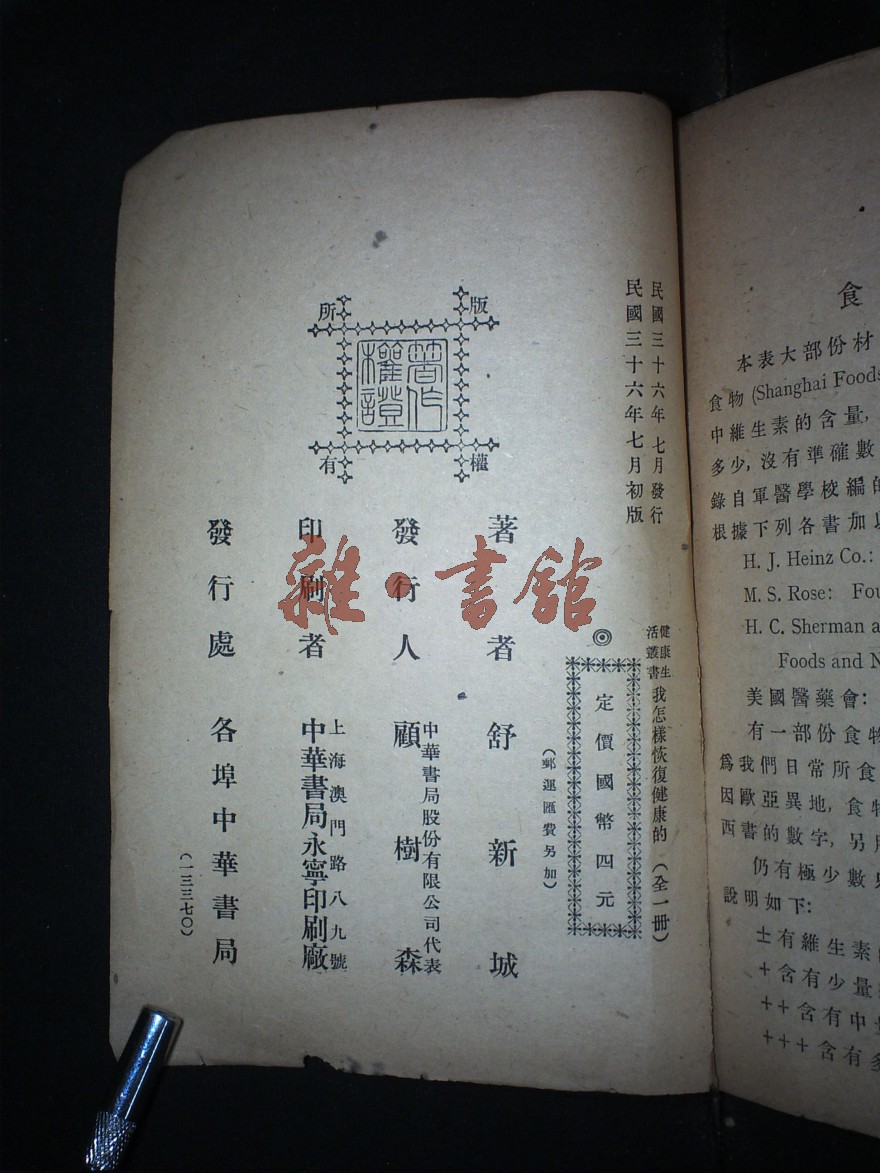 民國三十六年七月發行
民國三十六年七月初版
健康生活叢書
我怎樣恢復健康的(全一册)
◎定價國幣四元
(郵運匯費另加)
著者 舒新城
中華書局股份有限公司代表
發行人 顧樹森
上海澳門路八九號
印刷者 中華書局永寧印刷廠
發行處 各埠中華書局
(一三三七〇)
版權所有
著作權證
雜·書館
食
本表大部份材
食物 (Shanghai Foods
中維生素的含量,
多少,沒有準確數
錄自軍醫學校編的
根據下列各書加以
H. J. Heinz Co.:
M. S. Rose: Fou
H. C. Sherman a
Foods and N
美國醫藥會:
有一部份食物
爲我們日常所食
因歐亞異地,食物
西書的數字,另用
仍有極少數
說明如下:
±有維生素
+含有少量
++含有中
+++含有多